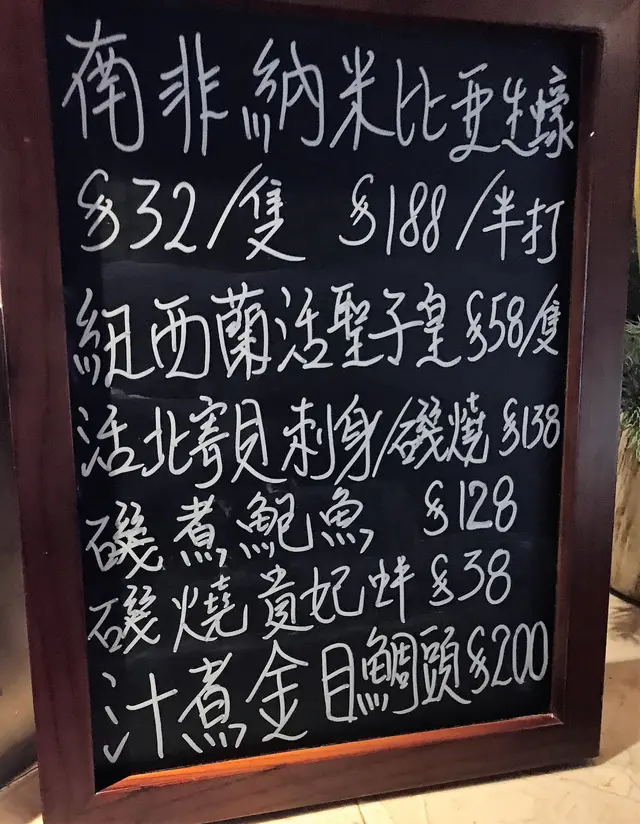 南非納米比亞生蠔
$32/隻 $188/半打
紐西蘭活聖子皇$58/隻
活北寄貝刺身/磯燒 $138
磯煮鮑魚 $128
磯燒貴妃蚌 $38
汁煮金目鯛頭$200